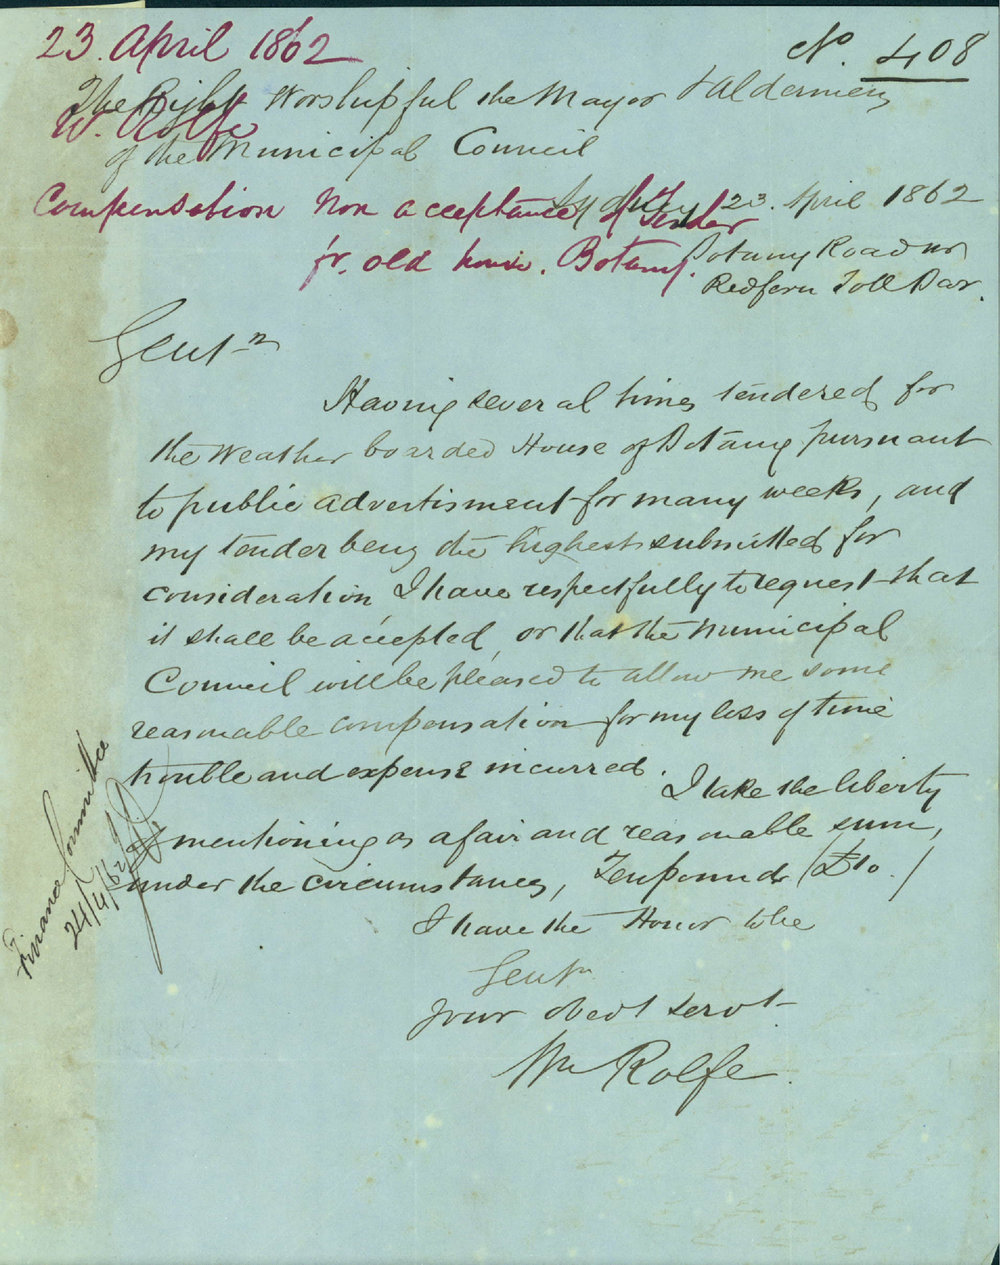 23. April 1862
No. 408
The Right Worshipful the Mayor & Aldermen
W. Rolfe
of the Municipal Council
Compensation Non acceptance of Tender
Sydney 23. April 1862
fr. old house. Botany.
Botany Road nr
Redfern Toll Bar.
Gentn
Having several times tendered for
the Weather boarded House of Botany pursuant
to public advertisment for many weeks, and
my tender being the highest submitted for
consideration I have respectfully to request that
it shall be accepted, or that the Municipal
Council will be pleased to allow me some
reasonable compensation for my loss of time
trouble and expense incurred.
I take the liberty
of mentioning as a fair and reasonable sum,
under the circumstances, Ten pounds (£10.)
I have the Honor to be
Gentn
your obedt servt
Wm Rolfe
Finance Committee
24/4/62